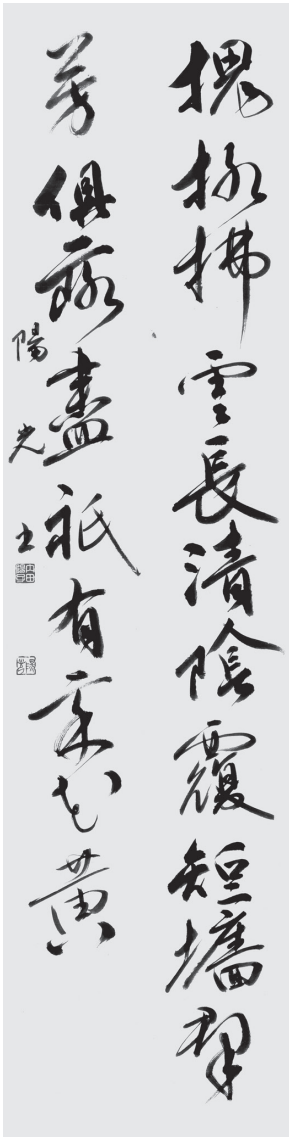 槐柳拂雲長清陰覆短墻群
芳俱落盡祇有花黃
陽光